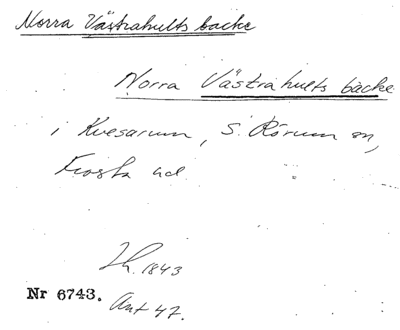 Norra Västrahults backe
Norra Västrahults backe
i Kvesarum, S. Rörum sn,
Frosta hd
1843
Nr 6743. Ant 47.